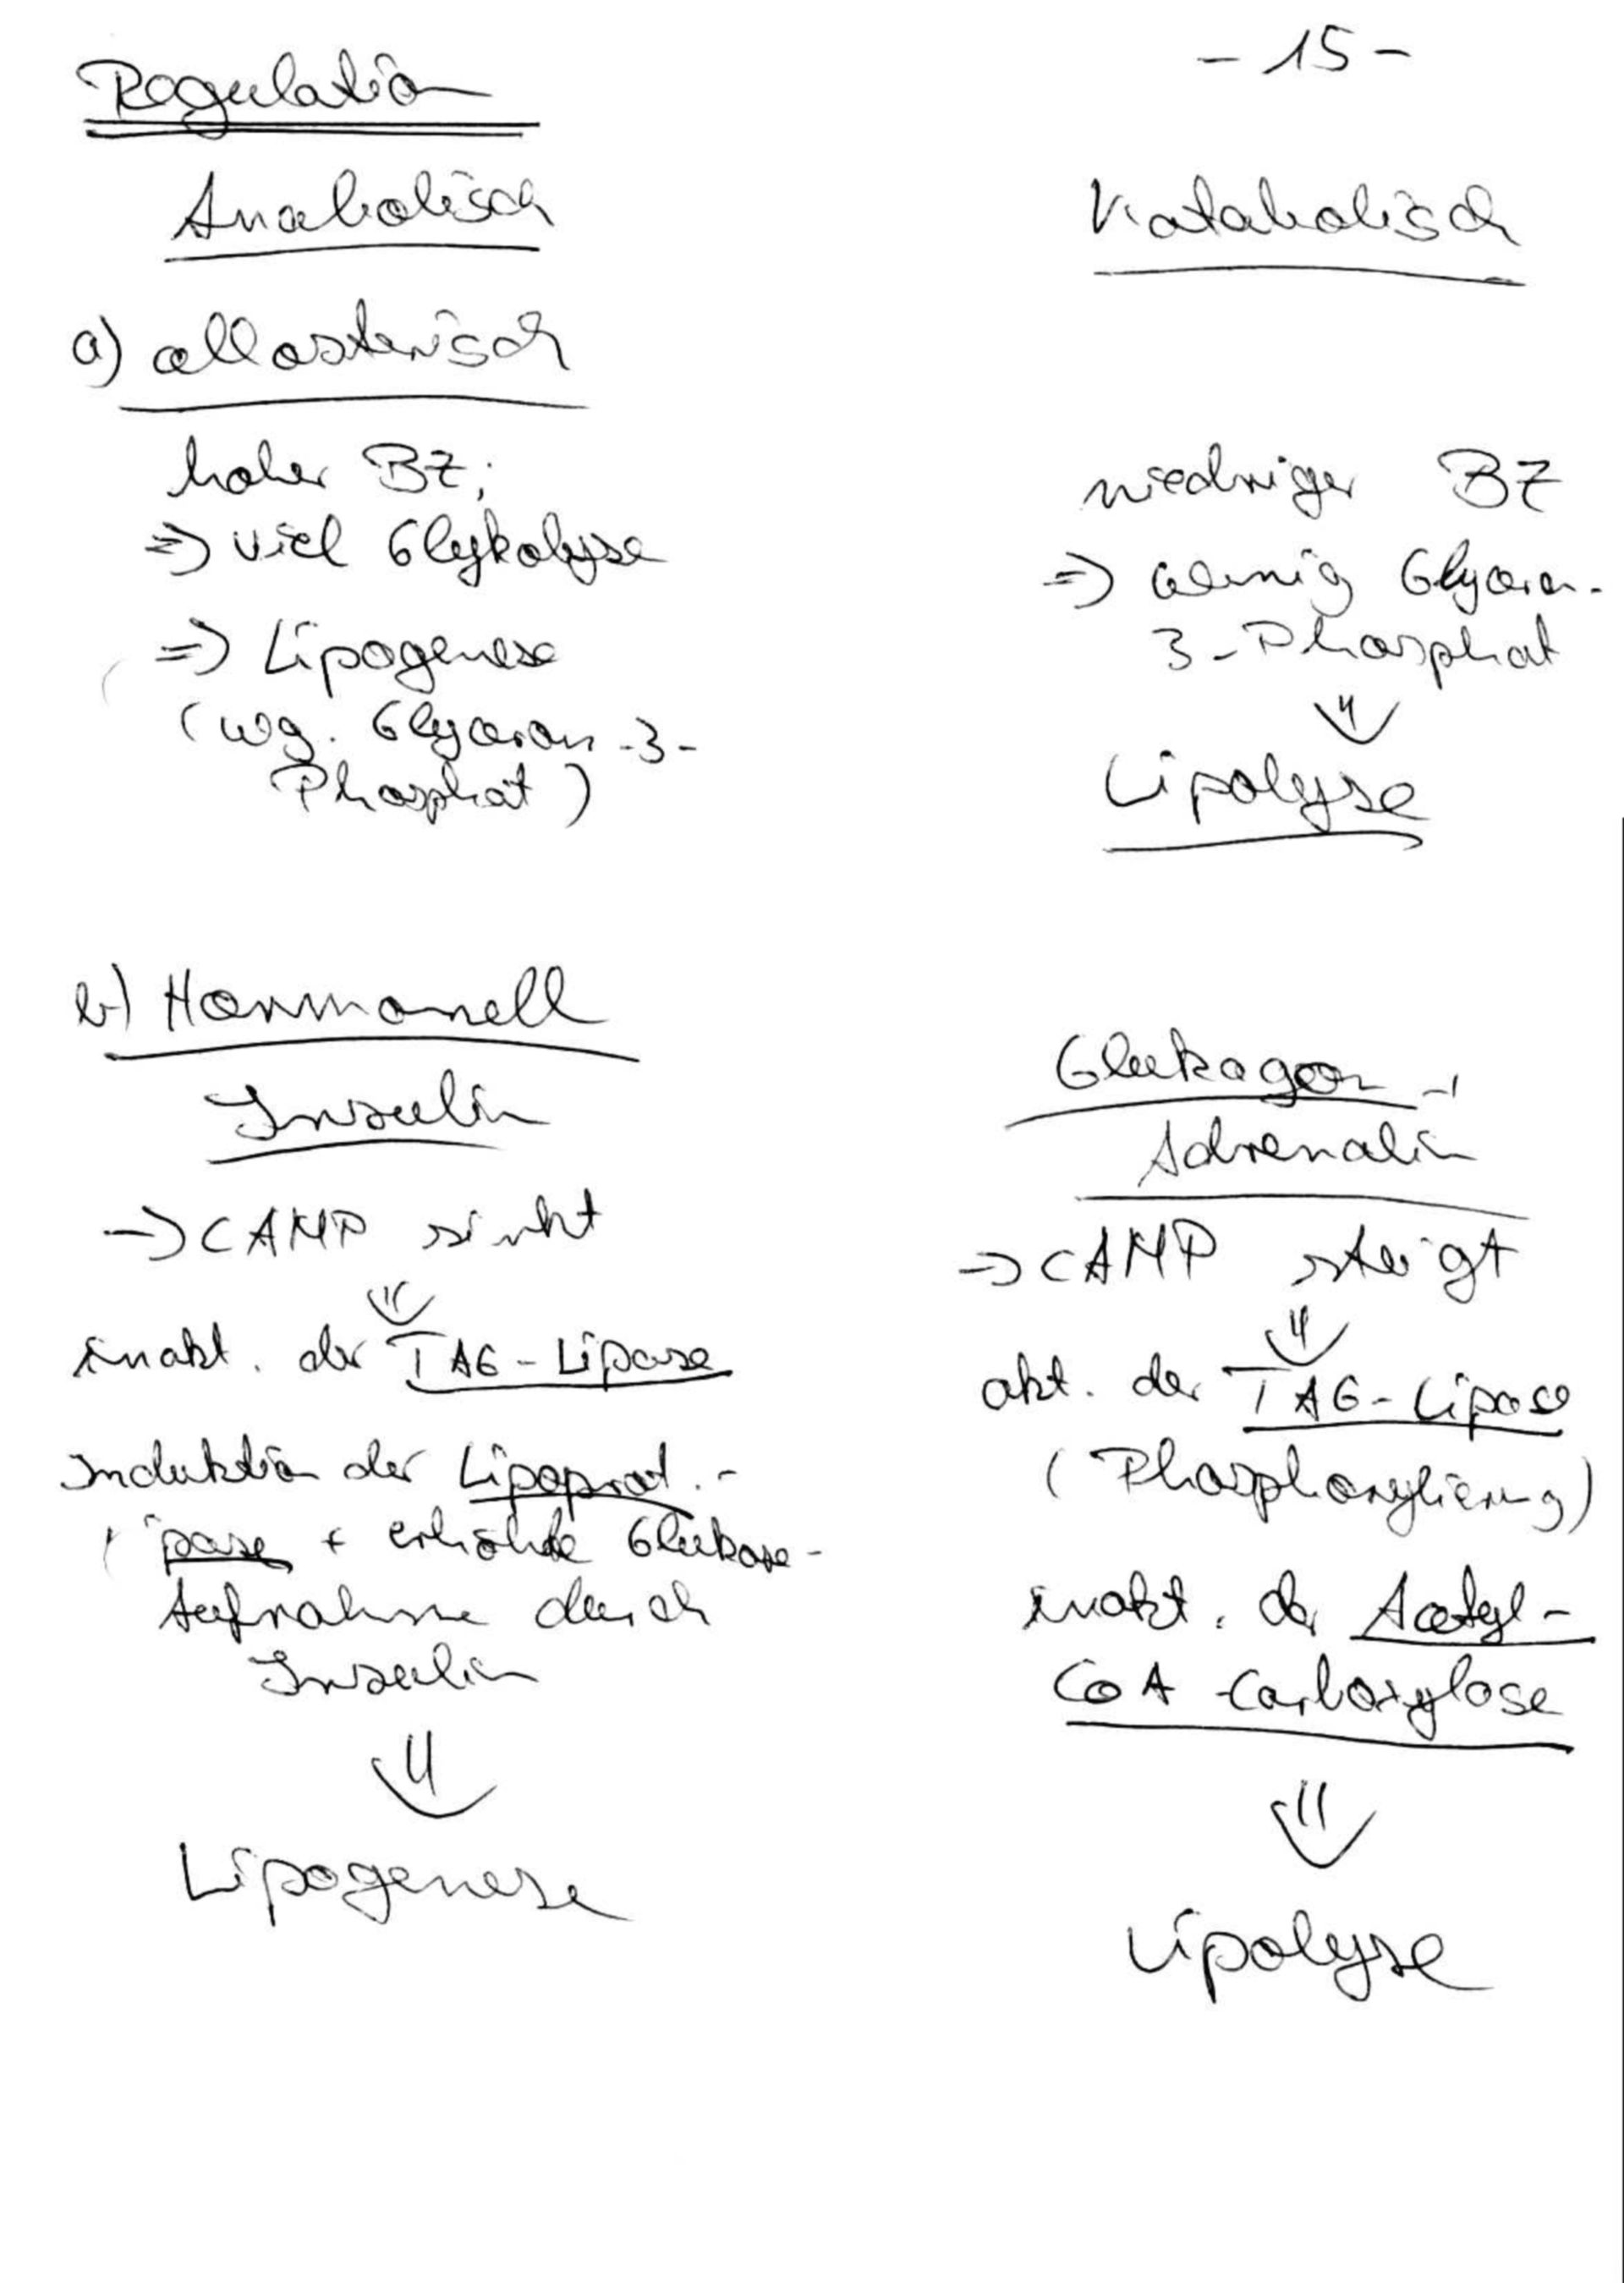 - 15 -
Regulation
Anabolisch
a) allosterisch
hoher BZ;
=> viel Glykolyse
=> Lipogenese
(wg. Glycerin-3-
Phosphat)
b) Hormonell
Insulin
-> CAMP sinkt
inakt. der TAG-Lipase
Induktion der Lipoprot.-
lipase + erhöhte Glukose-
Aufnahme durch
Insulin
Lipogenese
Katabolisch
niedriger BZ
=> wenig Glycerin-
3-Phosphat
Lipolyse
Glukagon -,
Adrenalin
-> CAMP steigt
akt. der TAG-Lipase
(Phosphorylierung)
inakt. der Acetyl-
CoA-Carboxylase
Lipolyse